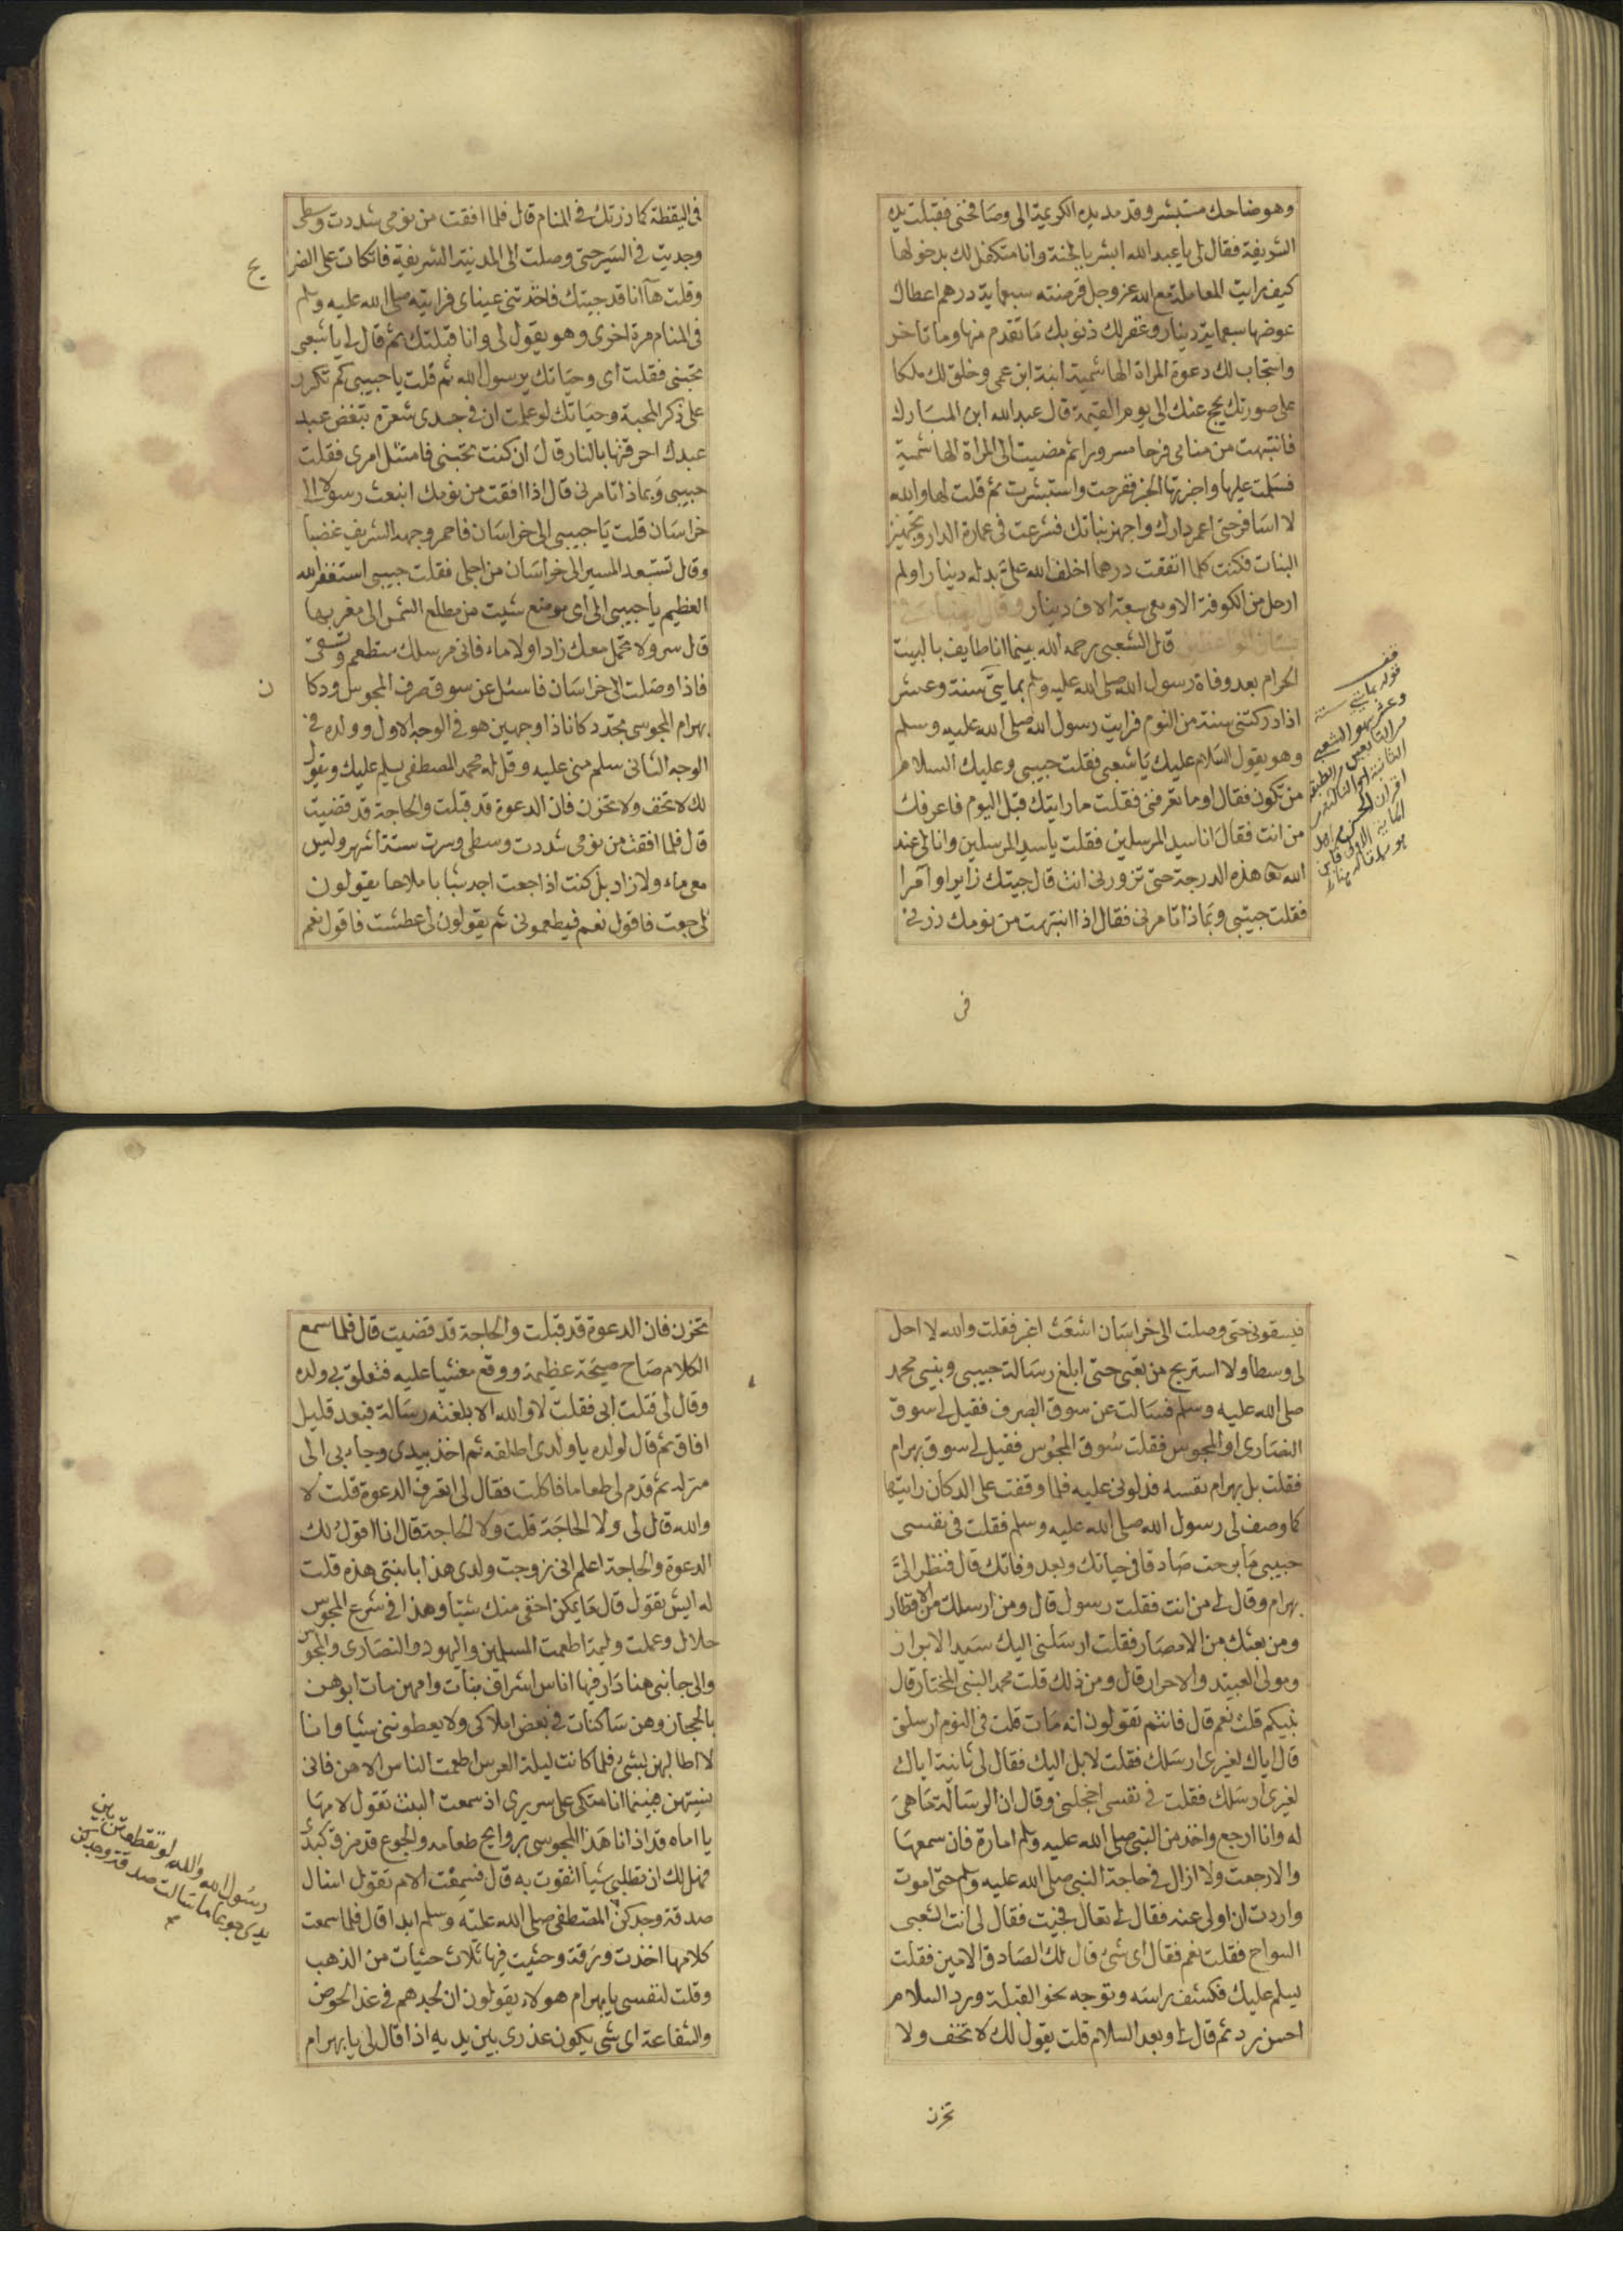 وهو ضاحك مستبشر وقد مد يده الكريمة الي وصافحني فقبلت يده
الشريفة فقال لي يا عبد الله ابشر بالجنة وانا متكفل لك بدخولها
كيف رايت المعاملة مع الله عز وجل قرضته سبعماية درهم اعطاك
عوضها سبعماية دينار وغفر لك ذنوبك ما تقدم منها وما تاخر
واستجاب لك دعوة المراة الهاشمية ابنة ابن عمي وخلق لك ملكا
على صورتك يحج عنك الى يوم القيمة قال عبد الله ابن المبارك
فانتبهت من منامي فرحا مسرورا ثم مضيت الى المراة الهاشمية
فسلمت عليها واخبرتها الخبر ففرحت واستبشرت ثم قلت لها والله
لا اسافر حتى اعمر دارك واجهز بناتك فشرعت في عمارة الدار وتجهيز
البنات فكنت كلما انفقت درهما اخلف الله علي بدله دينارا ولم
ارحل من الكوفة الا ومعي سبعة الاف دينار
قال الشعبي رحمه الله بينما انا طايف بالبيت
الحرام بعد وفاة رسول الله صلى الله عليه وسلم بمايتي سنة وعشر
اذ ادركتني سنة من النوم فرايت رسول الله صلى الله عليه وسلم
وهو يقول السلام عليك يا شعبي فقلت حبيبي وعليك السلام
من تكون فقال او ما تعرفني فقلت ما رايتك قبل اليوم فاعرفك
من انت فقال انا سيد المرسلين فقلت يا سيد المرسلين وانا لي عند
الله تعا هذه الدرجة حتى تزورني انت قال جيتك زايرا وآمرا
فقلت حبيبي وبماذا تامرني فقال اذا انتبهت من نومك زرني
في
في اليقظة كما زرتك في المنام قال فلما افقت من نومي شددت وسطي
وجديت في السير حتى وصلت الى المدنية الشريفة فاتكات على الضر
يح
وقلت ها انا قد جيتك فاخذتني عيناي فرايته صلى الله عليه وسلم
في المنام مرة اخرى وهو يقول لي وانا قبلتك ثم قال لي يا شعبي
تحبني فقلت اي وحياتك يرسول الله ثم قلت يا حبيبي كم تكرر
على ذكر المحبة وحياتك لو علمت ان في جسدي شعرة تبغض عبد
عبدك احرقتها بالنار قال ان كنت تحبني فامتثل امري فقلت
حبيبي وبماذا تامرني قال اذا افقت من نومك انبعث رسولا الى
خراسان قلت يا حبيبي الى خراسان فاحمر وجهه الشريف غضبا
وقال تستبعد المسير الى خراسان من اجلي فقلت حبيبي استغفر الله
العظيم يا حبيبي الى اي موضع شيت من مطلع الشمس الى مغربها
قال سر ولا تحمل معك زادا ولا ماء فاني مرسلك ستطعم وتسقى
فاذا وصلت الى خراسان فاسئل عن سوق صرف المجوس ودكا
ن
بهرام المجوسي تجد دكانا ذا وجهين هو في الوجه الاول وولده في
الوجه الثاني سلم مني عليه وقل له محمد المصطفى يسلم عليك ويقول
لك لا تخف ولا تحزن فان الدعوة قد قبلت والحاجة قد قضيت
قال فلما افقت من نومي شددت وسطي وسرت ستة اشهر وليس
معي ماء ولا زاد بل كنت اذا جعت اجد شبابا ملاحا يقولون
لي جعت فاقول نعم فيطعموني ثم يقولون لي عطشت فاقول نعم
فيسقوني حتى وصلت الى خراسان اشعث اغبر فقلت والله لا احل
لي وسطا ولا استريح من تعبي حتى ابلغ رسالة حبيبي ونبيي محمد
صلى الله عليه وسلم فسالت عن سوق الصرف فقيل لي سوق
النصارى او المجوس فقلت سوق المجوس فقيل لي سوق بهرام
فقلت بل بهرام نفسه فدلوني عليه فلما وقفت على الدكان رايتها
كما وصف لي رسول الله صلى الله عليه وسلم فقلت في نفسي
حبيبي ما برحت صادقا في حياتك وبعد وفاتك قال فنظر الي
بهرام وقال لي من انت فقلت رسول قال ومن ارسلك من الاقطار
ومن بعثك من الامصار فقلت ارسلني اليك سيد الابرار
ومولى العبيد والاحرار قال ومن ذلك قلت محمد النبي المختار قال
نبيكم قلت نعم قال فانتم تقولون انه مات قلت في النوم ارسلني
قال اياك لغيري ارسلك فقلت لا بل اليك فقال لي ثانية اياك
لغيري ارسلك فقلت في نفسي اخجلني وقال ان الرسالة ما هي
له وانا ارجع واخذ من النبي صلى الله عليه وسلم امارة فان سمعها
والا رجعت ولا ازال في حاجة النبي صلى الله عليه وسلم حتى اموت
واردت ان اولي عنه فقال لي تعال فجيت فقال لي انت الشعبي
السواح فقلت نعم فقال اي شي قال لك الصادق الامين فقلت
يسلم عليك فكشف راسه وتوجه نحو القبلة ورد السلام
احسن رد ثم قال لي وبعد السلام قلت يقول لك لا تخف ولا
تحزن
تحزن فان الدعوة قد قبلت والحاجة قد قضيت قال فلما سمع
الكلام صاح صيحة عظيمة ووقع مغشيا عليه فتعلق بي ولده
وقال لي قتلت ابي فقلت لا والله الا بلغته رسالة فبعد قليل
افاق ثم قال لولده يا ولدي اطلقه ثم اخذ بيدي وجاء بي الى
منزله ثم قدم لي طعاما فاكلت فقال لي اتعرف الدعوة قلت لا
والله قال لي ولا الحاجة قلت ولا الحاجة قال انا اقول لك
الدعوة والحاجة اعلم اني زوجت ولدي هذا بابنتي هذه قلت
له ايش تقول قال ما يمكن اخفي منك شيا وهذا في شرع المجوس
حلال وعملت وليمة اطعمت المسلمين واليهود والنصارى والمجوس
والى جانبي هنا دار فيها اناس اشراف بنات وامهن مات ابوهن
بالحجاز وهن ساكنات في بعض املاكي ولا يعطونني شيا وانا
لا اطالبهن بشي فلما كانت ليلة العرس اطعمت الناس الا هن فاني
نسيتهن فبينما انا متكي على سريري اذ سمعت البنت تقول لامها
يا اماه قد اذانا هذا المجوسي بروايح طعامه والجوع قد مزق كبدي
فهل لك ان تطلبي شيا نتقوت به قال فسمعت الام تقول اسال
صدقة وجدكن المصطفى صلى الله عليه وسلم ابدا قال فلما سمعت
رسول الله والله لو تقطعتن بين
يدي جوعا ما سالت صدقة وجدكن
كلامها اخذت ورقة وحثيت فيها ثلاث حثيات من الذهب
وقلت لنفسي يا بهرام هولاء يقولون ان لجدهم في غد الحوض
والشفاعة اي شي يكون عذري بين يديه اذا قال لي يا بهرام